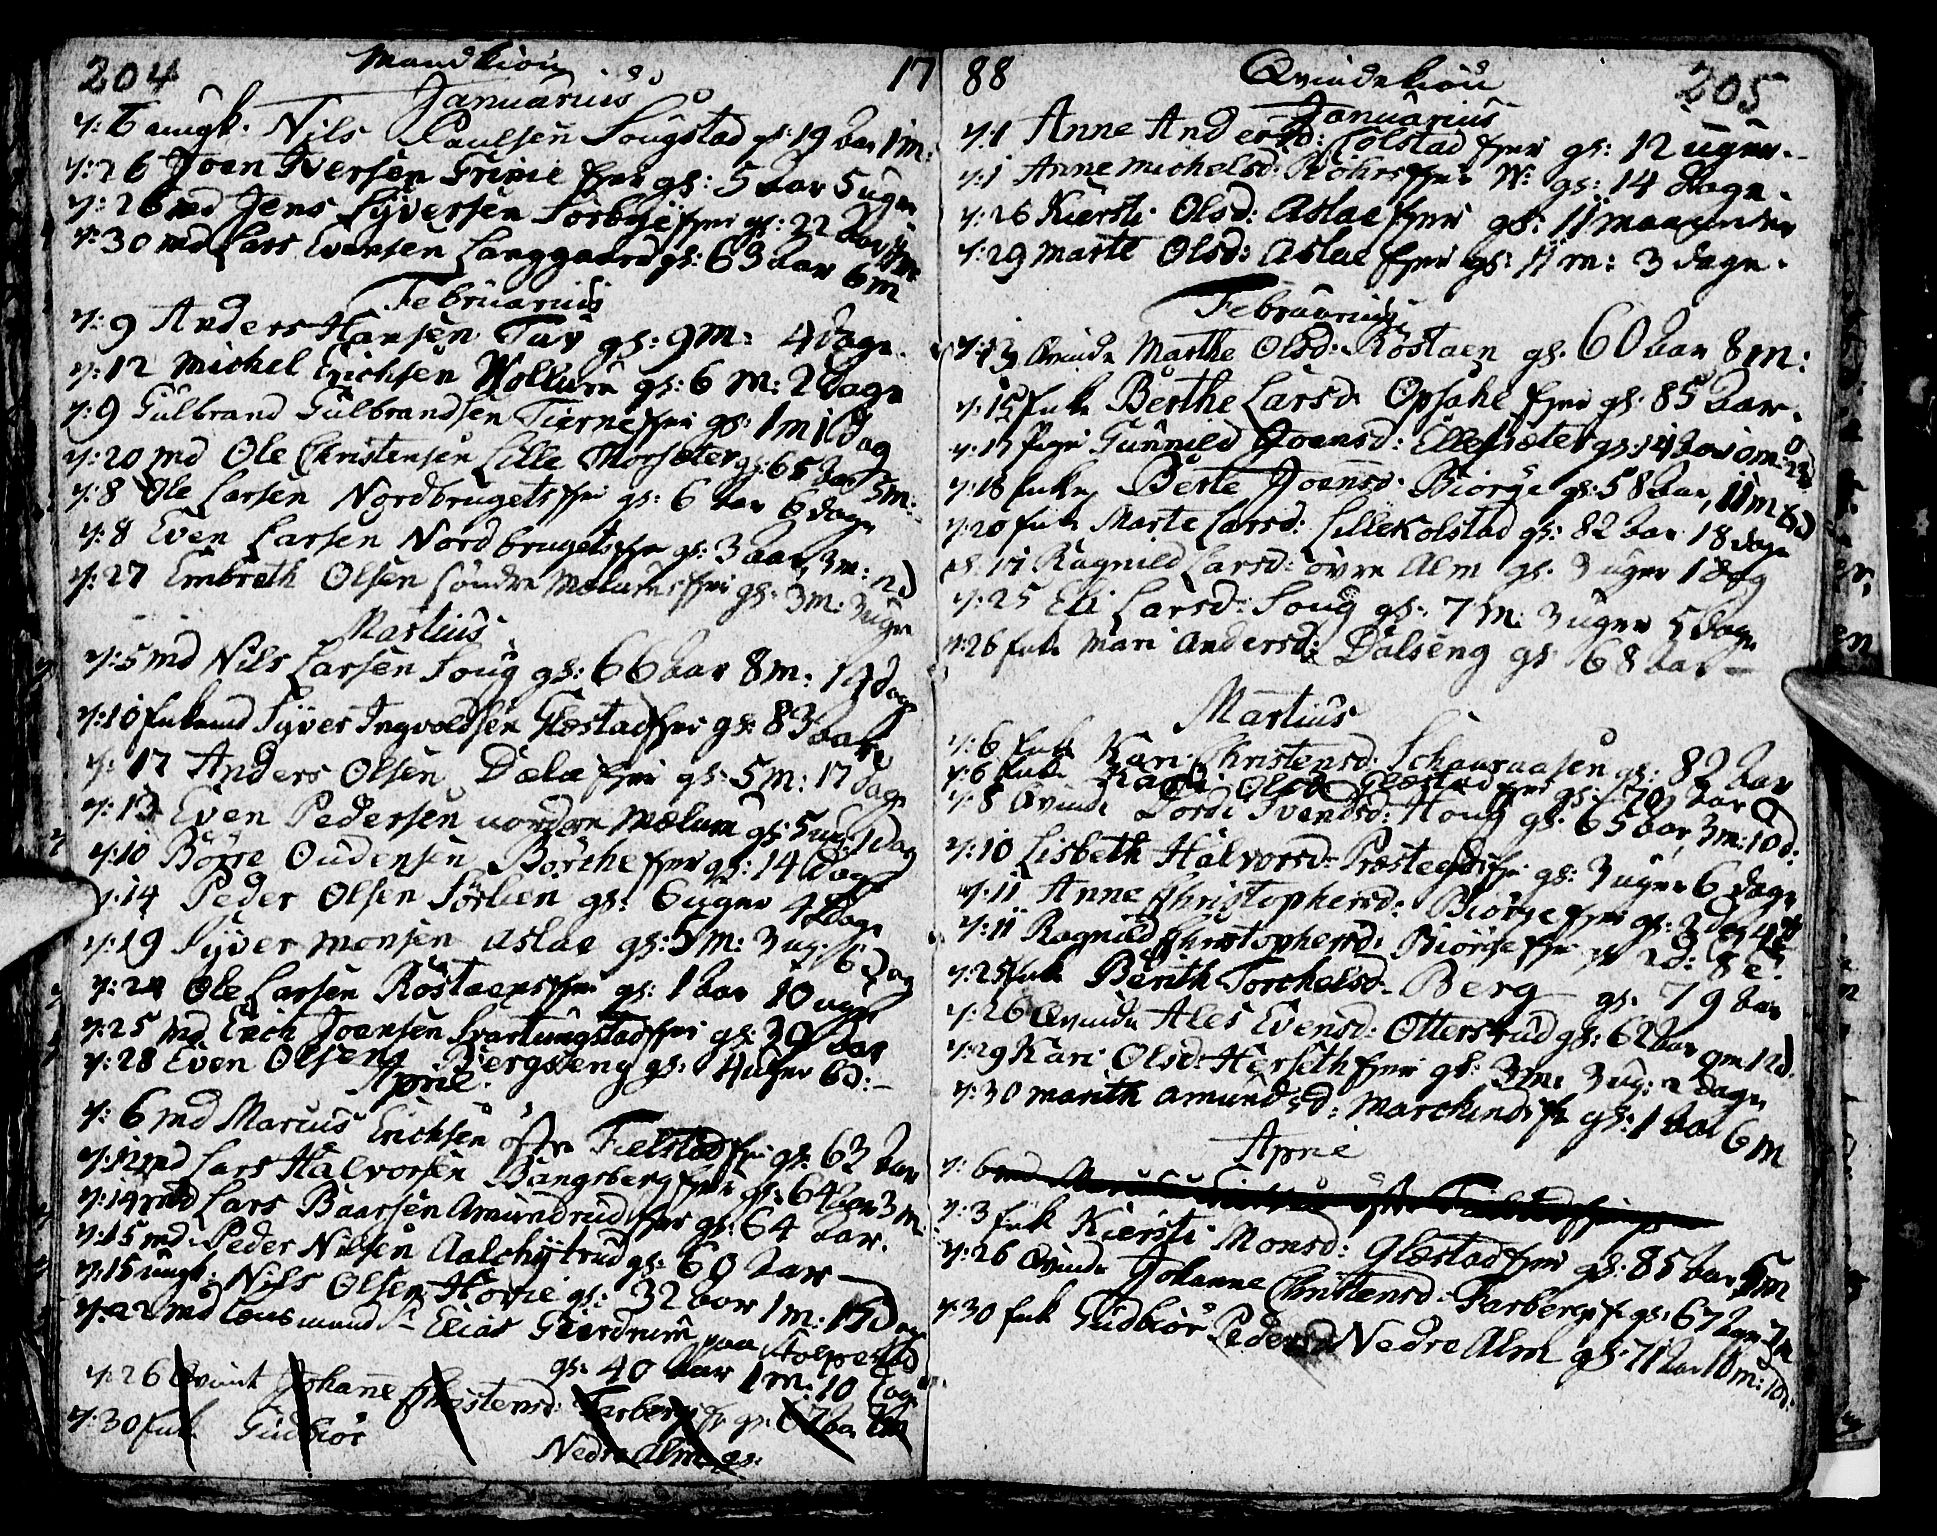 204 Mandkiön 17
Januarius
d: 6 ungk. Nils Paulsen Sougstad gl: 19 aar 1 m:
d: 26 Joen Iversen Grinie ejer gl: 5 aar 5 uger
d: 26 md Jens Syversen Sorbye ejer gl: 22 aar
d: 30 md Lars Evensen Langgaard gl: 63 aar 6 m
Februarius
d: 9 Anders Hansen Tuv gl: 9 m: 4 dage.
d: 12 Michel Erichsen Wollum gl: 6 m: 2 dage
d: 9 Gulbrand Gulbrandsen Tierne eier gl: 1 m 1 dag
d: 20 md Ole Christensen Lille Thorsæter gl: 65 aar 5 m:
d: 8 Ole Larsen Nordbrugets eier gl: 6 aar 6 dage
d: 8 Even Larsen Nordbrugets eier gl: 3 aar, 3 m: 2 d
d: 27 Embreth Olsen söndre Mælums eier gl: 3 m: 3 uger
Martius
d: 5 md Nils Larsen Soug gl: 66 aar 8 m: 14 dage
d: 10 Enkemd Syver Ingvoldsen Glæstad eier gl: 83 aar
d: 17 Anders Olsen Dæla eier gl: 5 m: 17 dage
d: 13 Even Pedersen nordre Mælum gl: 5 ug: 1 dag
d: 10 Börre Oudensen Börche eier gl: 14 dage
d: 14 Peder Olsen Sörlien gl: 6 uger 4 dage
d: 19 Syver Monsen Aslae gl: 5 m: 3 ug: 6 dag
d: 24 Ole Larsen Röstaens eier gl: 1 aar 10 uger
d: 25 md. Erich Joensen Svartungstad eier gl: 39 aar
d: 28 Even Olsen Bergseng gl: 4 uger 6 d:
April.
d: 6 md Marcus Erichsen öfre Fielstad eier gl: 63 aar
d: 12 md Lars Halvorsen Bangsberg eier gl: 64 aar 3 m
d: 14 md Lars Baarsen Amundrud eier gl: 64 aar.
d: 15 md. Peder Nilsen Aalchystrud gl: 60 aar
d: 15 ungk: Nils Olsen Hovie gl: 32 aar 1 m: 15 dage
d: 22 md Lensmand Sr Elias Gierdrum paa Stolpestad
gl: 40 aar 1 m: 10 dage
d: 26 Qvinde Johanne Christensd: Farbergs gl: 67 aar
d: 30 Enk. Gudbiör Nedre Alm gl:
88 Qvindekiön 205
Januarius
d: 1 Anne Andersd: Colstad eier gl: 12 uger.
d: 1 Anne Michelsd: Röhrs eier N: gl: 14 dage.
d: 26 Kiersti Olsd: Aslae eier gl: 11 maaneder
d: 29 Marte Olsd: Aslae eier gl: 11 m: 3 dage.
Februarius
d: 13 Qvinde Marthe Olsd: Röstaen gl. 60 aar 8 m:
d: 15 Enke Berthe Larsd. Opsahl eier gl: 85 aar.
d: 17 Pige Gunnild Joensd: Ellefsæter gl: 14 aar 10 m:
d: 18 Enke Berte Joensd: Biörge gl: 58 aar, 11 m 6 d
d: 20 Enke Marte Larsd: Lillekolstad gl: 82 aar 18 dage
d. 17 Ragnild Larsd: övre Alm gl. 3 uger 1 dag
d: 25 Eli Larsd: Soug gl: 7 m: 3 uger 5 dage
d: 26 Enke Mari Andersd: Dalseng gl 68 aar
Martius
d: 6 Enke Kari Christensd: Schauraasen gl: 82 aar
d: 6 Enke Kari Olsd: Glæstad eier gl: 70 aar
d: 8 Qvinde Dordi Svendsd: Houg gl: 65 aar, 3 m: 10 d:
d: 10 Lisbeth Halvorsd: Præstegds eier gl: 3 uger 6 dage
d: 11 Anne Christophersd: Biörge eier gl: 2 dag
d: 11 Ragnild Christophersd: Biörge eier gl 2 d:
d: 25 Enke Berith Torchelsd: Berg gl. 79 aar
d: 26 Qvinde Ales Evensd: Otterstrud gl: 62 aar 9 m 12 d.
d: 29 Kari Olsd: Herseth eier gl: 3 m: 3 ug: 2 dage
d: 30 Marith Amundsd: Marchends gl: 1 aar 6 m
April
d: 6 md Marcus Erichsen öfre Fielstad eier gl
d: 3 Enk Kiersti Monsd: Glæstad eier gl: 85 aar 5 m
d: 26 Qvinde Johanne Christensd: Farbergs gl: 67 aar 7 m
d: 30 Enk Gudbiör Pedersd Nedre Alm gl: 71 aar 10 m: 10 d: